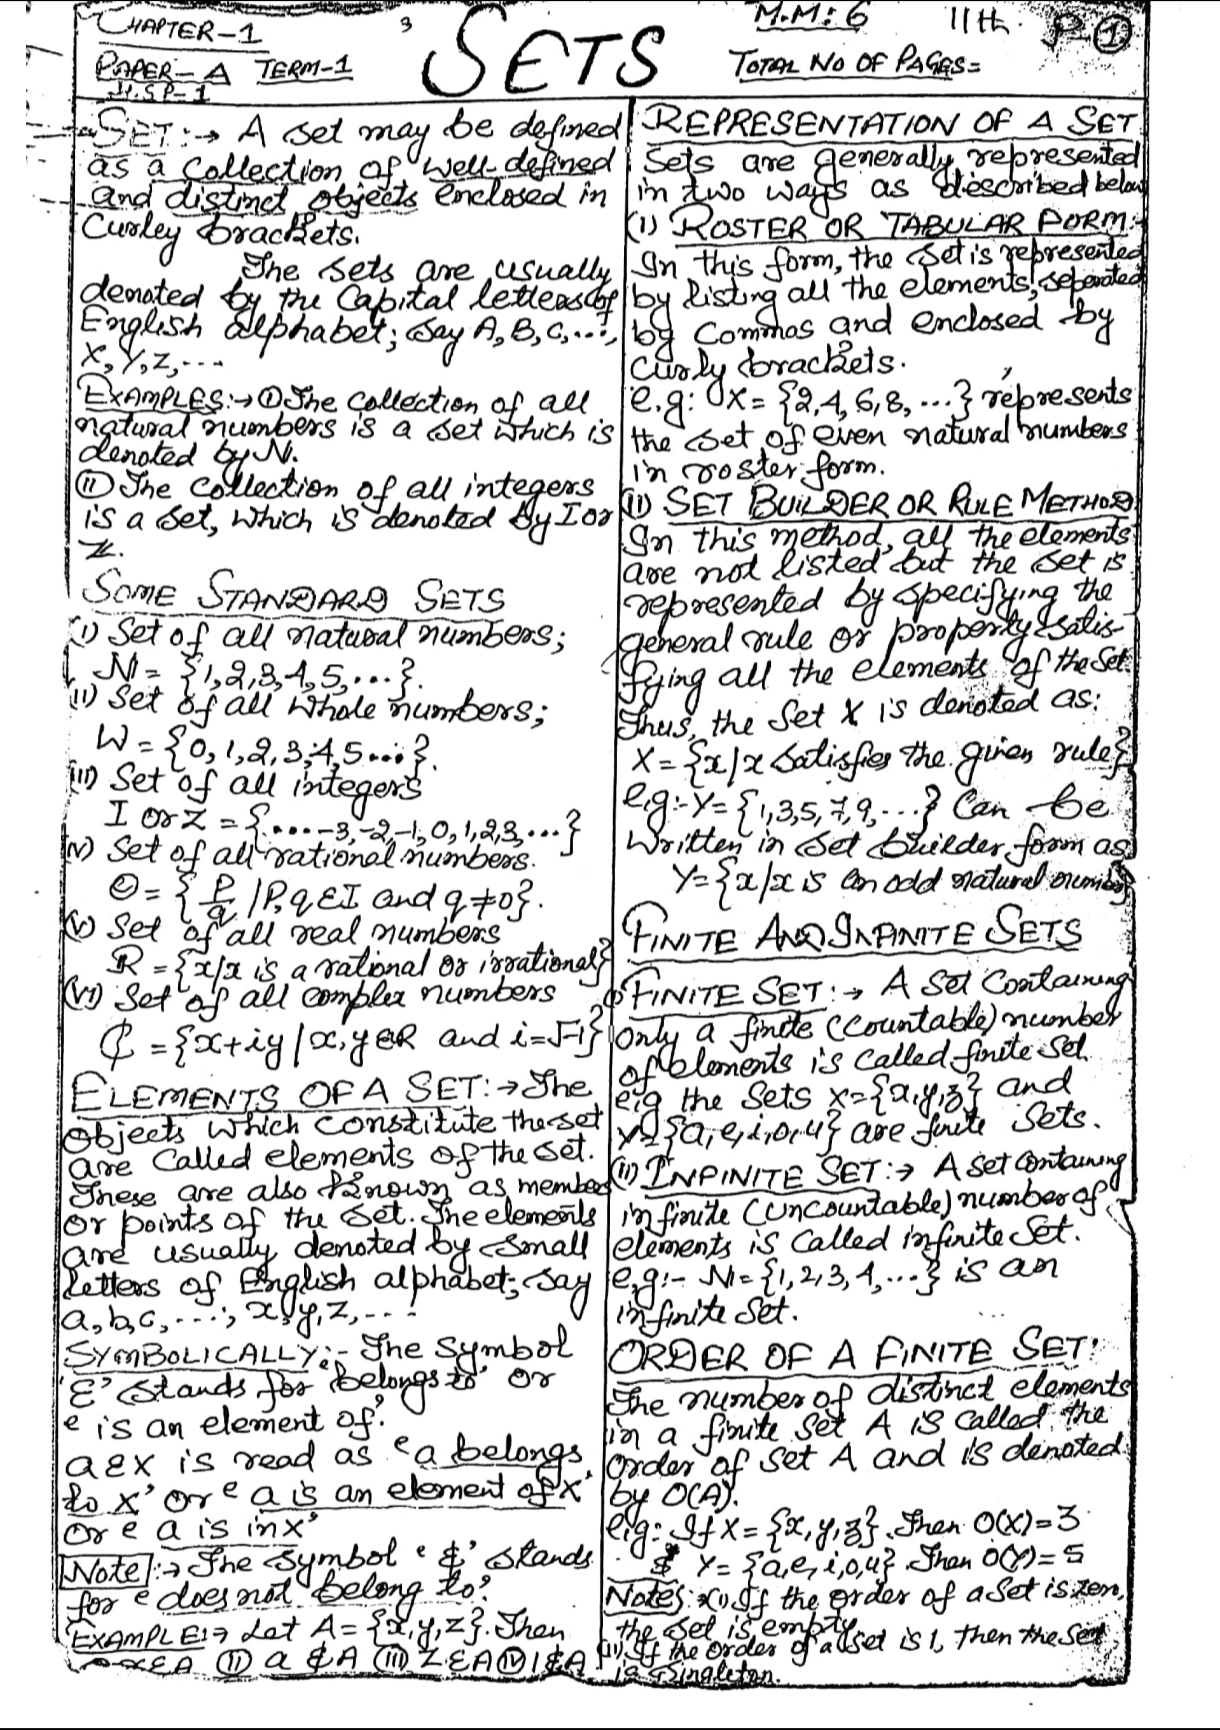 CHAPTER-1
PAPER-A TERM-1
H.S.P-1
3
SETS
M.M: 6
11th
P-①
TOTAL NO OF PAGES=
SET:→ A set may be defined
as a collection of well-defined
and distinct objects enclosed in
Curley brackets.
The sets are usually
denoted by the Capital letters of
English alphabet; say A, B, C, ...,
X, Y, Z, ...
EXAMPLES:→ ① The collection of all
natural numbers is a set which is
denoted by N.
(II) The collection of all integers
is a set, which is denoted by I or
Z.
SOME STANDARD SETS
(I) Set of all natural numbers;
N = {1,2,3,4,5,...}.
(II) Set of all whole numbers;
W = {0,1,2,3,4,5...}.
(III) Set of all integers
I or Z = {....-3,-2,-1,0,1,2,3,...}
(IV) Set of all rational numbers.
Q = {P/q | P,q ∈ I and q ≠ 0}.
(V) Set of all real numbers
R = {x/x is a rational or irrational}
(VI) Set of all complex numbers
₵ = {x+iy | x,y ∈ R and i=√-1}
ELEMENTS OF A SET:→ The
objects which constitute the set
are called elements of the set.
These are also known as member
or points of the set. The elements
are usually denoted by small
letters of English alphabet; say
a, b, c, ...; x, y, z, ...
SYMBOLICALLY:- The symbol
'∈' stands for 'belongs to' or
'is an element of'.
a ∈ X is read as 'a belongs
to X' or 'a is an element of X'
or 'a is in X'
Note:→ The symbol '∉' stands
for 'does not belong to'.
EXAMPLE:→ Let A = {x,y,z}. Then
x ∈ A (II) a ∉ A (III) Z ∈ A (IV) 1 ∉ A
REPRESENTATION OF A SET
Sets are generally represented
in two ways as described below
(I) ROSTER OR TABULAR FORM:-
In this form, the set is represented
by listing all the elements, separated
by Commas and enclosed by
curly brackets.
e.g: X = {2,4,6,8,...} represents
the set of even natural numbers
in roster form.
(II) SET BUILDER OR RULE METHOD
In this method, all the elements
are not listed but the set is
represented by specifying the
general rule or property satis-
fying all the elements of the set.
Thus, the Set X is denoted as:
X = {x/x satisfies the given rule}
e.g:- Y = {1,3,5,7,9,...} Can be
Written in set builder form as
Y = {x/x is an odd natural number}
FINITE AND INFINITE SETS
(I) FINITE SET:→ A set Containing
only a finite (Countable) number
of elements is called finite set.
e.g the Sets X={x,y,z} and
Y={a,e,i,o,u} are finite sets.
(II) INFINITE SET:→ A set containing
infinite (uncountable) number of
elements is called infinite set.
e.g:- N = {1,2,3,4,...} is an
infinite set.
ORDER OF A FINITE SET:
The number of distinct elements
in a finite set A is called the
order of set A and is denoted
by O(A).
e.g: If X = {x,y,z}. Then O(X)=3
& Y = {a,e,i,o,u} Then O(Y)=5
Notes:→(I) If the order of a set is zero,
the set is empty.
(II) If the order of a set is 1, then the set
is Singleton.